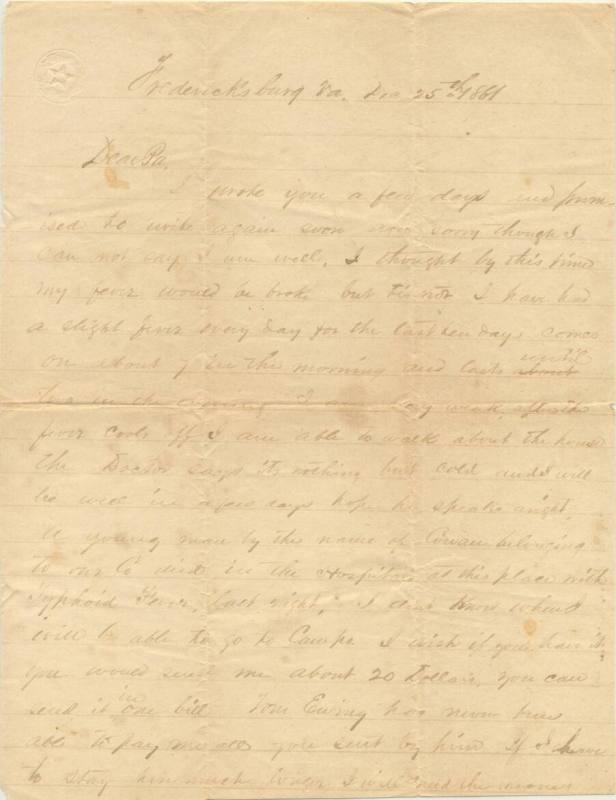 Fredericksburg Va. Dec 25th 1861
Dear Pa.
I wrote you a few days and prom-
ised to write again soon now sorry though I
can not say I am well. I thought by this time
my fever would be broke but tis not I have had
a slight fever every day for the last ten days comes
on about 7 in the morning and lasts until
in the evening I am very weak after the
fever cools off I am able to walk about the house
the Doctor says its nothing but cold and I will
be well in a few days hope he speaks aright.
A young man by the name of Cowan belonging
to our Co died in the Hospital at this place with
Typhoid Fever, last night. I dont know when I
will be able to go to Camp. I wish if you have it
you would send me about 20 Dollars, you can
send it in one bill Tom Ewing has never been
able to pay me all you sent by him if I have
to stay here much longer I will need the money